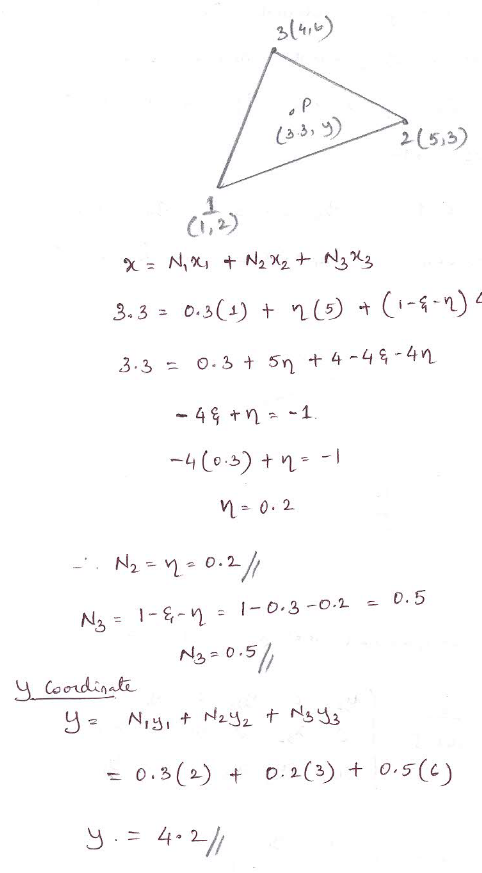 3(4,6)
P
(3.3, y)
2(5,3)
1
(1,2)
x = N₁x₁ + N₂x₂ + N₃x₃
3.3 = 0.3(1) + η(5) + (1-ξ-η) 4
3.3 = 0.3 + 5η + 4 - 4ξ - 4η
- 4ξ + η = -1.
-4(0.3) + η = -1
η = 0.2
∴ N₂ = η = 0.2//
N₃ = 1-ξ-η = 1-0.3-0.2 = 0.5
N₃ = 0.5//
y Coordinate
y = N₁y₁ + N₂y₂ + N₃y₃
= 0.3(2) + 0.2(3) + 0.5(6)
y . = 4.2//